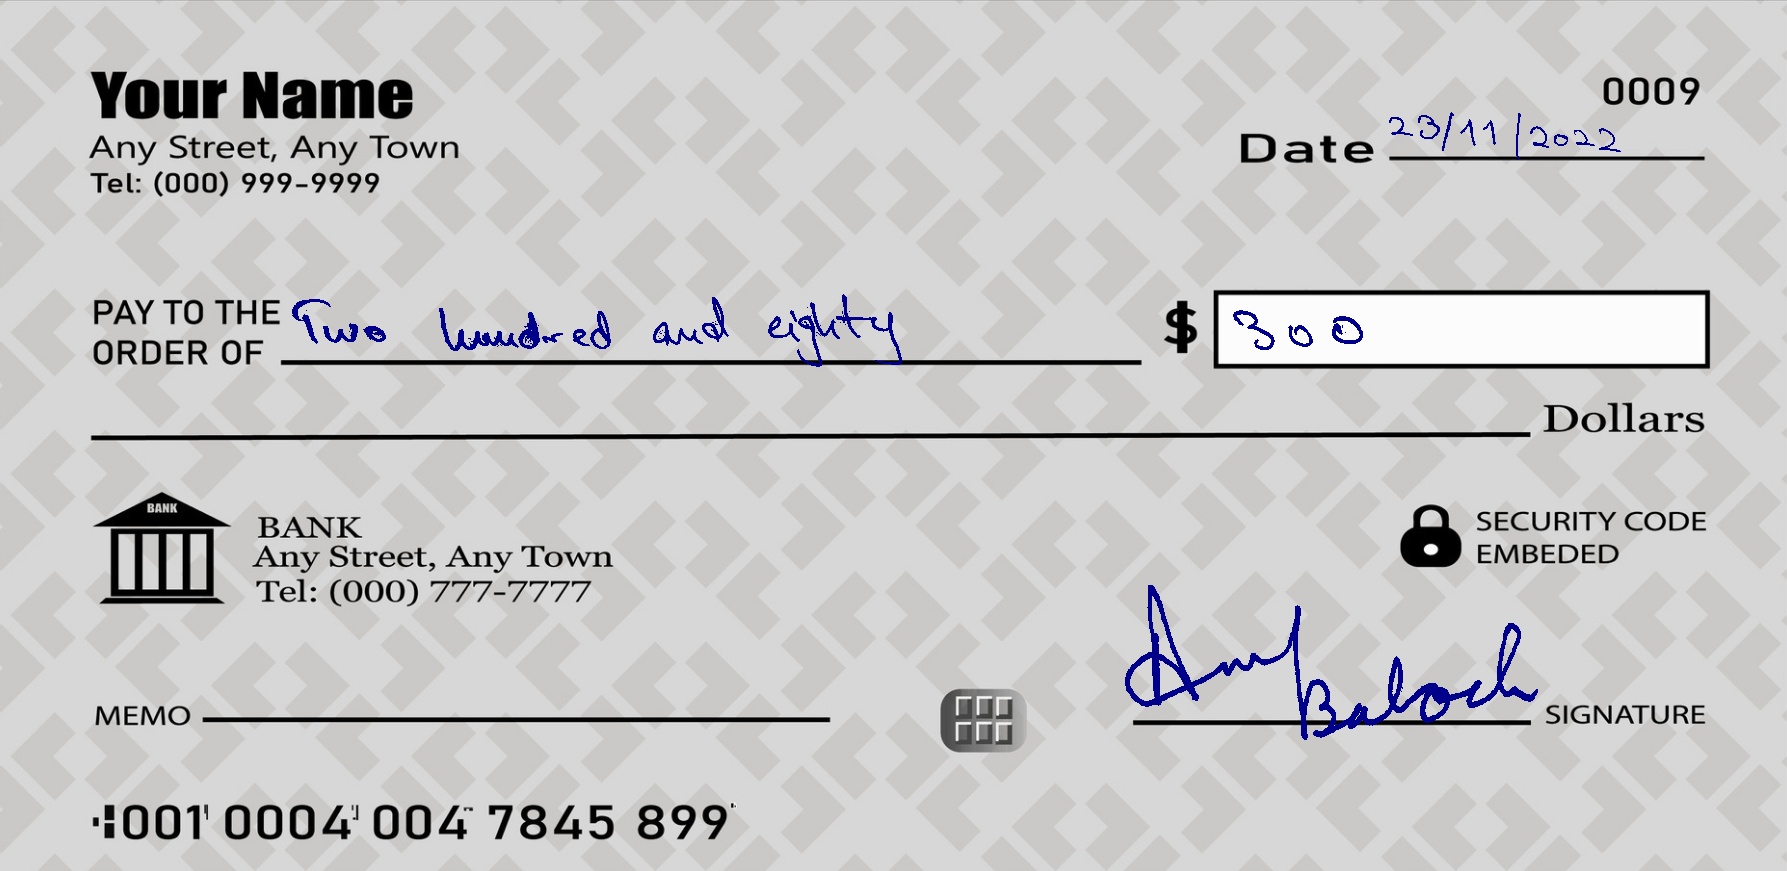 Your Name
0009
Any Street, Any Town
Date 23/11/2022
Tel: (000) 999-9999
PAY TO THE
ORDER OF Two hundred and eighty $ 300
Dollars
BANK
BANK
Any Street, Any Town
Tel: (000) 777-7777
SECURITY CODE
EMBEDED
MEMO
Baloch SIGNATURE
001 0004 004 7845 899